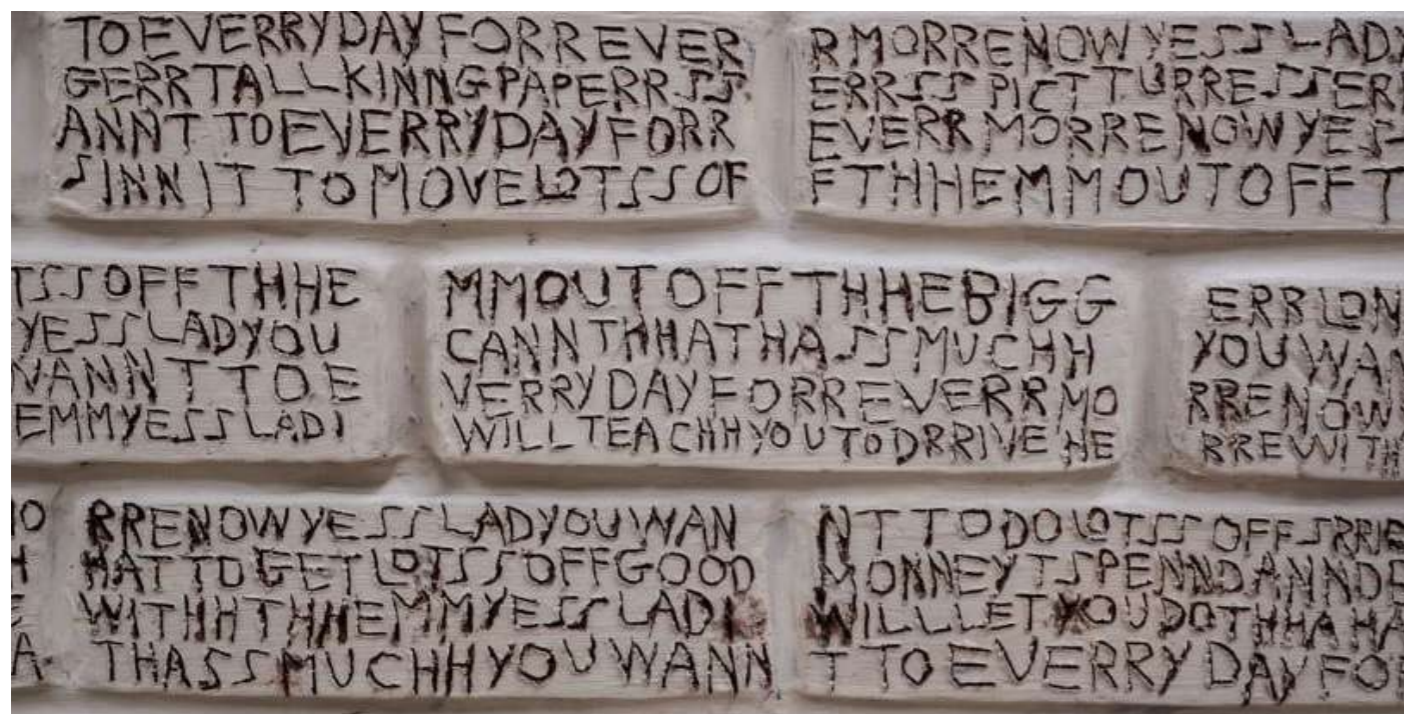 TOEVERRYDAY FORREVER
GERRTALLKINNGPAPERRSS
ANNT TOEVERRYDAYFORR
SINNIT TO MOVELOTSSOF
RMORRENOWYESSLADY
ERRSS PICTTURRESSER
EVERRMORRENOWYES
FTHHEMMOUTOFFT
TSSOFFTHHE
YESSLADYOU
WANNTTOE
EMMYESSLADI
MMOUTOFFTHHEBIGG
CANNTHHATHASSMUCHH
VERRYDAYFORREVERRMO
WILLTEACHHYOUTODRRIVEHE
ERRLON
YOUWAN
RRENOW
RREWITH
RRENOWYESSLADYOUWAN
HATTOGETLOTSSOFFGOOD
WITHHTHHEMMYESSLADI
THASSMUCHHYOUWANN
NTTODOLOTSSOFFSRRIE
MONNEYTSPENNDANNDE
WILLLETYOUDOTHHAHA
TTOEVERRYDAYFO